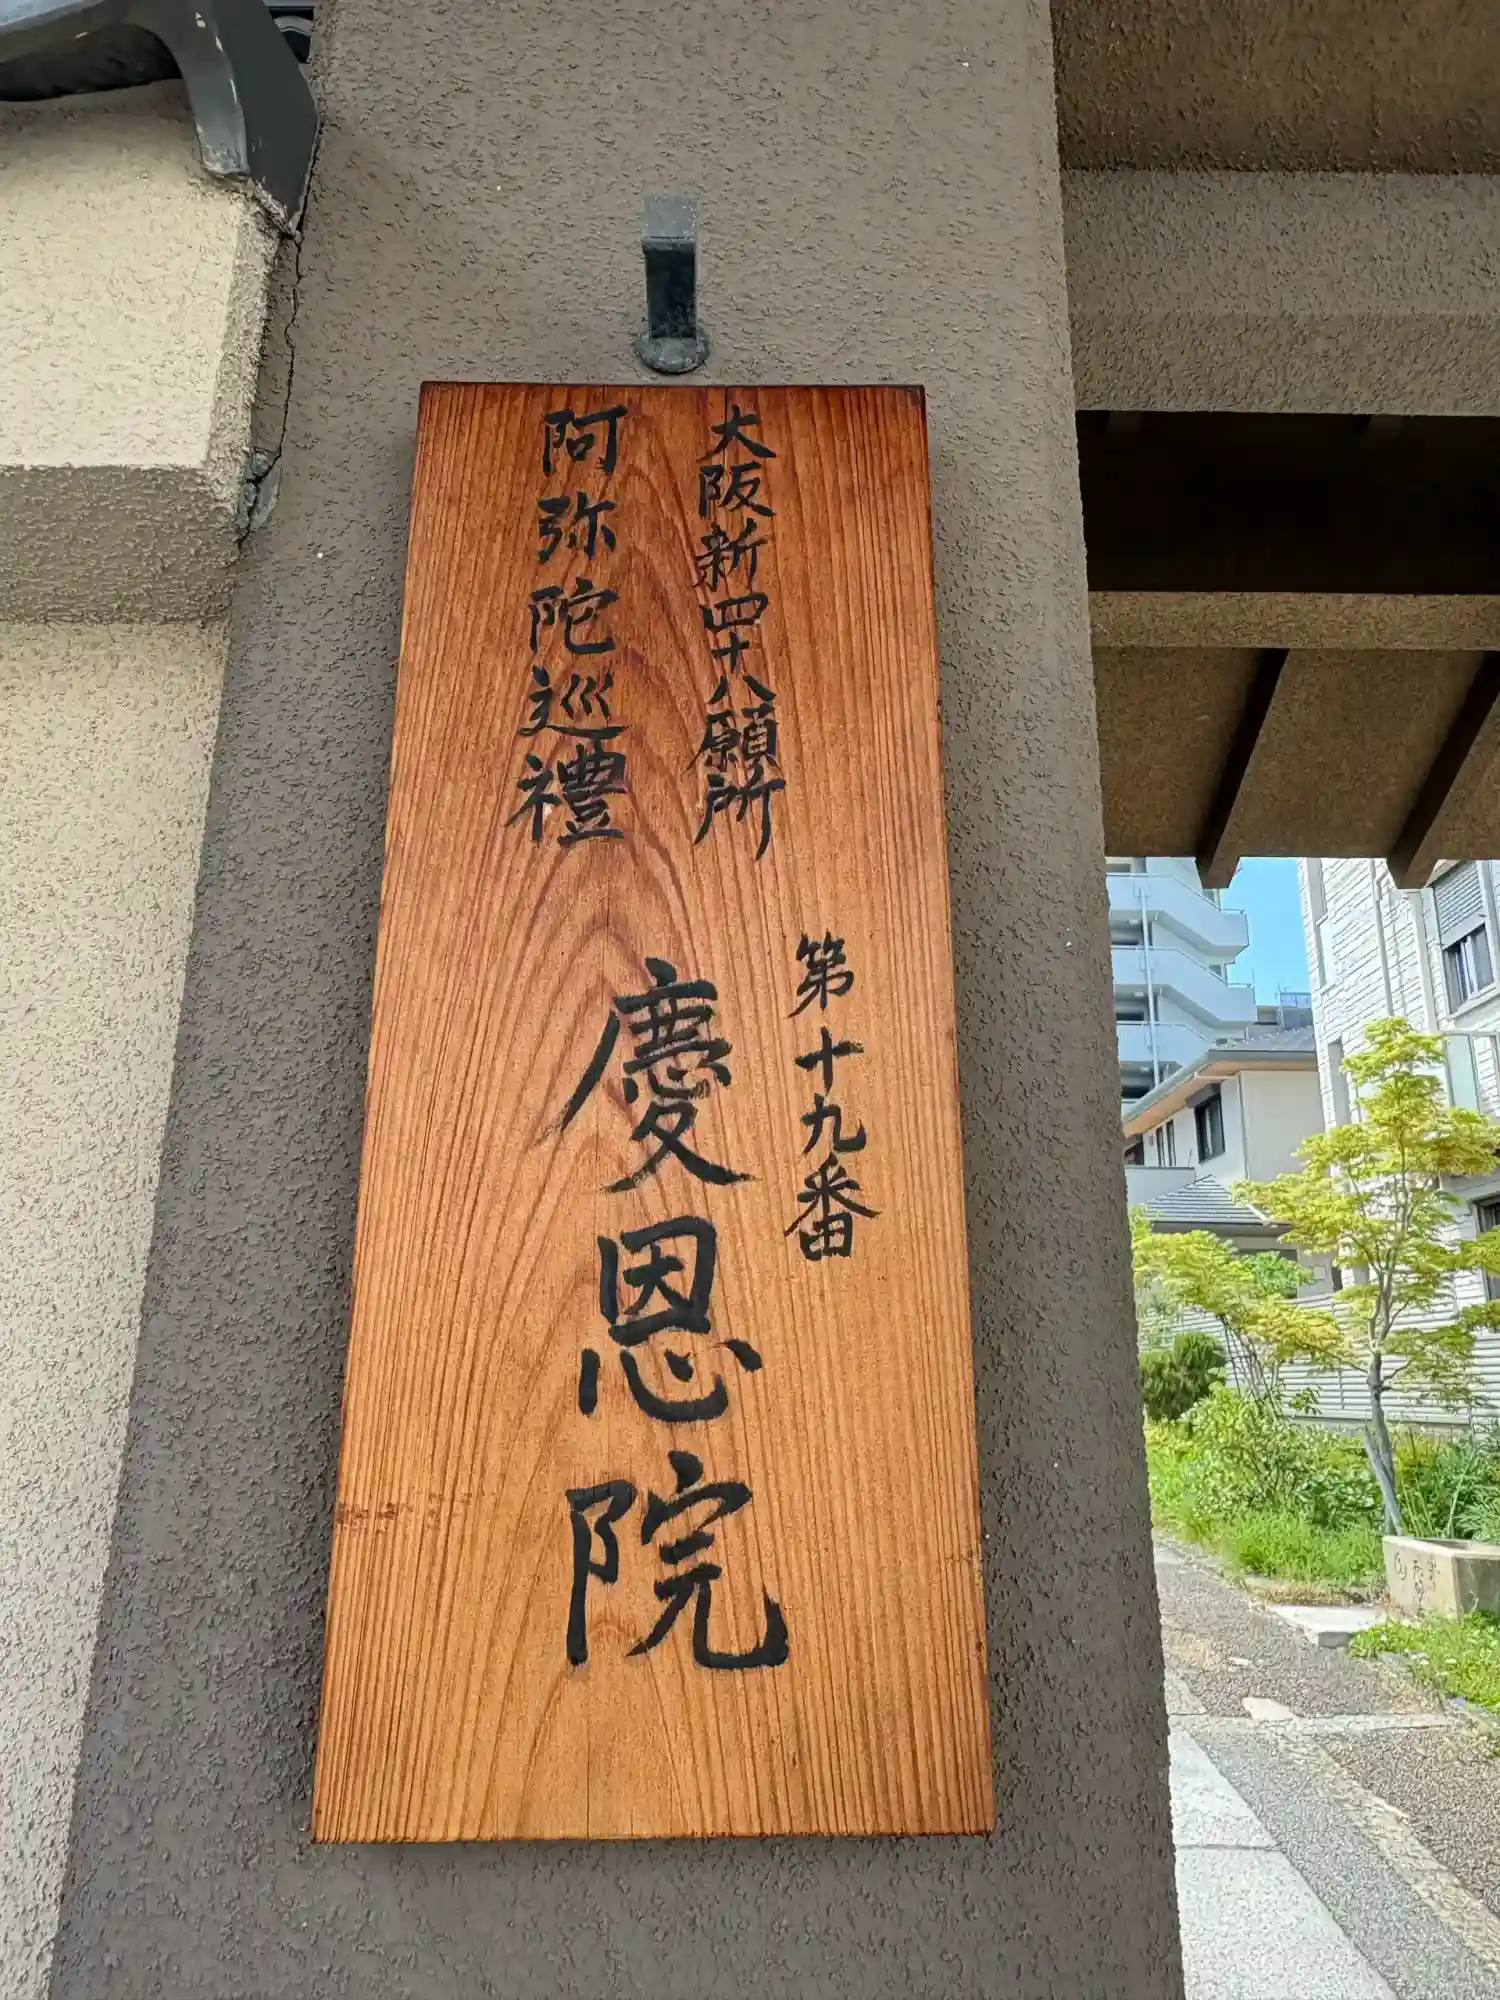 大阪新四十八願所
阿弥陀巡禮
第十九番
慶恩院